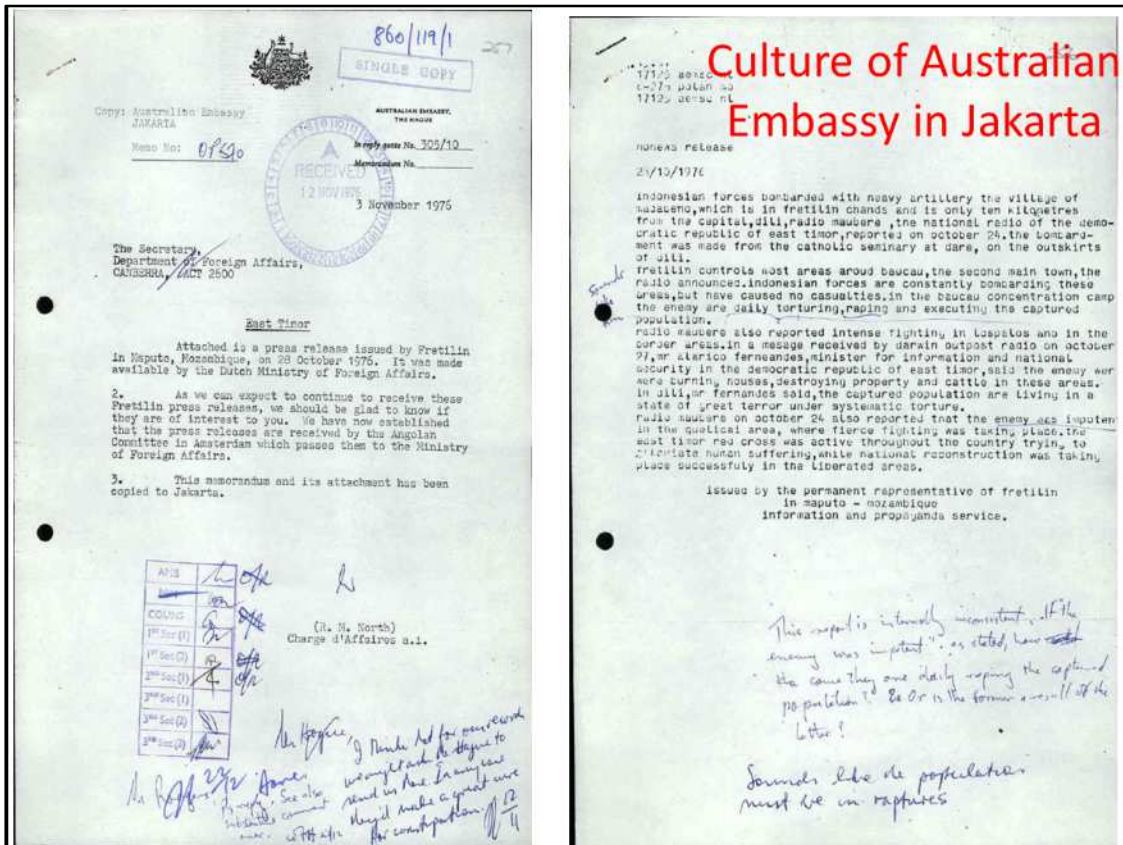 860/119/1
SINGLE COPY
Copy: Australian Embassy
JAKARTA
Memo No:
AUSTRALIAN EMBASSY,
THE HAGUE
In reply quote No. 305/10
Memorandum No.
RECEIVED
12 NOV 1976
3 November 1976
The Secretary,
Department of Foreign Affairs,
CANBERRA, ACT 2600
East Timor
Attached is a press release issued by Fretilin
in Maputo, Mozambique, on 28 October 1976. It was made
available by the Dutch Ministry of Foreign Affairs.
2. As we can expect to continue to receive these
Fretilin press releases, we should be glad to know if
they are of interest to you. We have now established
that the press releases are received by the Angolan
Committee in Amsterdam which passes them to the Ministry
of Foreign Affairs.
3. This memorandum and its attachment has been
copied to Jakarta.
(R. M. North)
Charge d'Affaires a.i.
AMB
COUNS
1st Sec (1)
1st Sec (2)
2nd Sec (1)
3rd Sec (1)
3rd Sec (2)
Mr Hogue,
I think not for our records
we might ask the Hague to
send us more. In any case
they'd make a great cure
for constipation.
Culture of Australian
Embassy in Jakarta
nonews release
indonesian forces bombarded with heavy artillery the village of
which is in fretilin chands and is only ten kilometres
from the capital,dili,radio maubere ,the national radio of the demo-
cratic republic of east timor,reported on october 24.the bombard-
ment was made from the catholic seminary at dare, on the outskirts
of dili.
fretilin controls most areas aroud baucau,the second main town,the
radio announced.indonesian forces are constantly bombarding these
areas,but have caused no casualties.in the baucau concentration camp
the enemy are daily torturing,raping and executing the captured
population.
Sounds
like
fun
radio maubere also reported intense fighting in lospalos and in the
border areas.in a mesage received by darwin outpost radio on october
27,mr alarico ferneandes,minister for information and national
security in the democratic republic of east timor,said the enemy wer
were burning houses,destroying property and cattle in these areas.
in dili,mr fernandes said,the captured population are living in a
state of great terror under systematic torture.
radio maubere on october 24 also reported that the enemy was impoten
in the quelicai area, where fierce fighting was taking place.the
east timor red cross was active throughout the country trying to
alleviate human suffering,while national reconstruction was taking
place successfuly in the liberated areas.
issued by the permanent representative of fretilin
in maputo - mozambique
information and propaganda service.
This report is internally inconsistent. If the
enemy was impotent, as stated, how
come they are daily raping the captured
population? Or is the former a result of the
latter?
Sounds like the population
must be in raptures